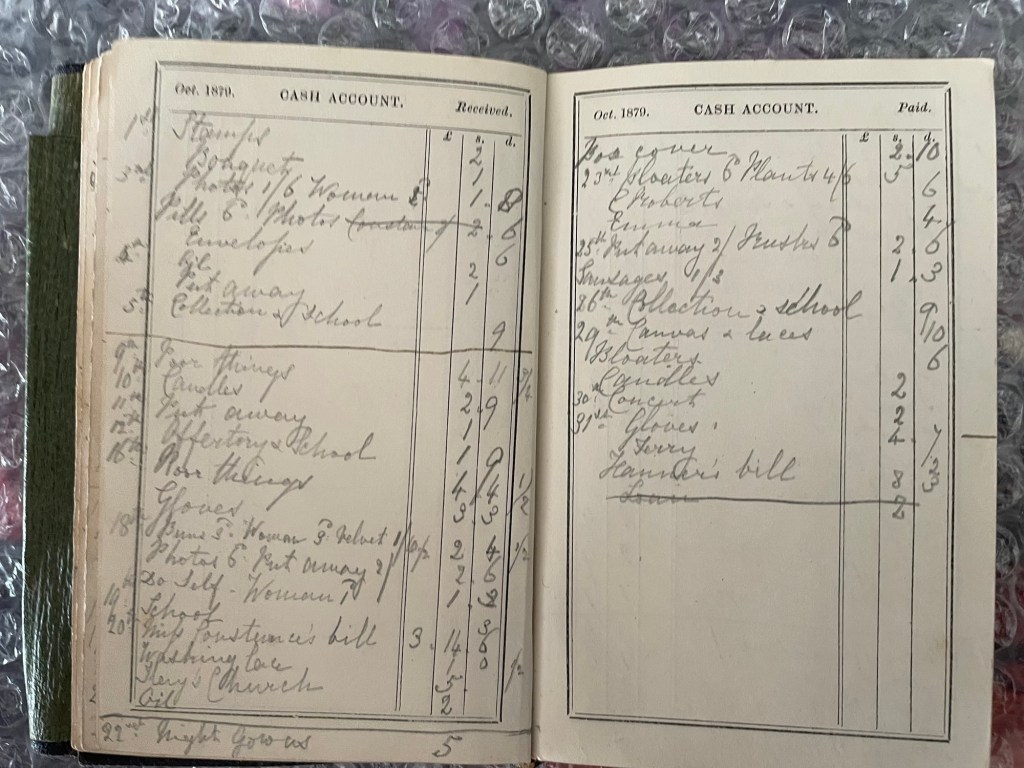 Oct. 1879. CASH ACCOUNT. Received.
£ s. d.
1st Stamps 2
Bouquet 1
3rd Photos 1/6 Woman 2 1. 8
Pills 6. Photos 2. 6
Envelopes 6
4th Oil 2
Put away 1
5th Collection & School 9
9th Poor things 4. 11
10th Candles 2. 9
11th Put away 1
12th Offertory & School 1 9
16th Poor things 4. 4 1/2
Gloves 3. 3
18th Buns 3. Woman 3. Velvet 1/ 2 4 1/2
Photos 6. Put away 2/ 2. 6
Do Self. Woman 1. 8
19th School 3
20th Miss Constance's bill 3. 14 6
Washing lace 1 0 1/2
Church 5
Oil 2
22nd Night Gowns 5
Oct. 1879. CASH ACCOUNT. Paid.
£ s. d.
Box cover 2. 10
23rd Bloaters 6 Plants 4/6 5
C Roberts 6
Emma 4
25th Put away 2/ 6 2. 6
Sausages 1/3 1. 3
26th Collection & School 9
29th Canvas & laces 10
Bloaters 6
Candles 2
30th Concert 2
31st Gloves. 4. 7
Ferry 3
bill 8
Loan 2